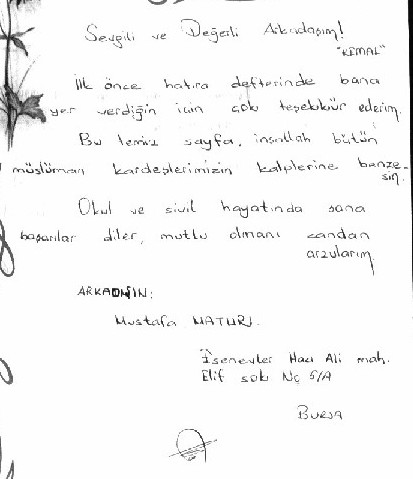 Sevgili ve Değerli Arkadaşım!
"KEMAL"
İlk önce hatıra defterinde bana
yer verdiğin için çok teşekkür ederim.
Bu temiz sayfa, inşallah bütün
müslüman kardeşlerimizin kalplerine benze-
sin.
Okul ve sivil hayatında sana
başarılar diler, mutlu olmanı candan
arzularım.
ARKADAŞIN:
Mustafa
Esenevler Hacı Ali mah.
Elif sok No 5/A
Bursa